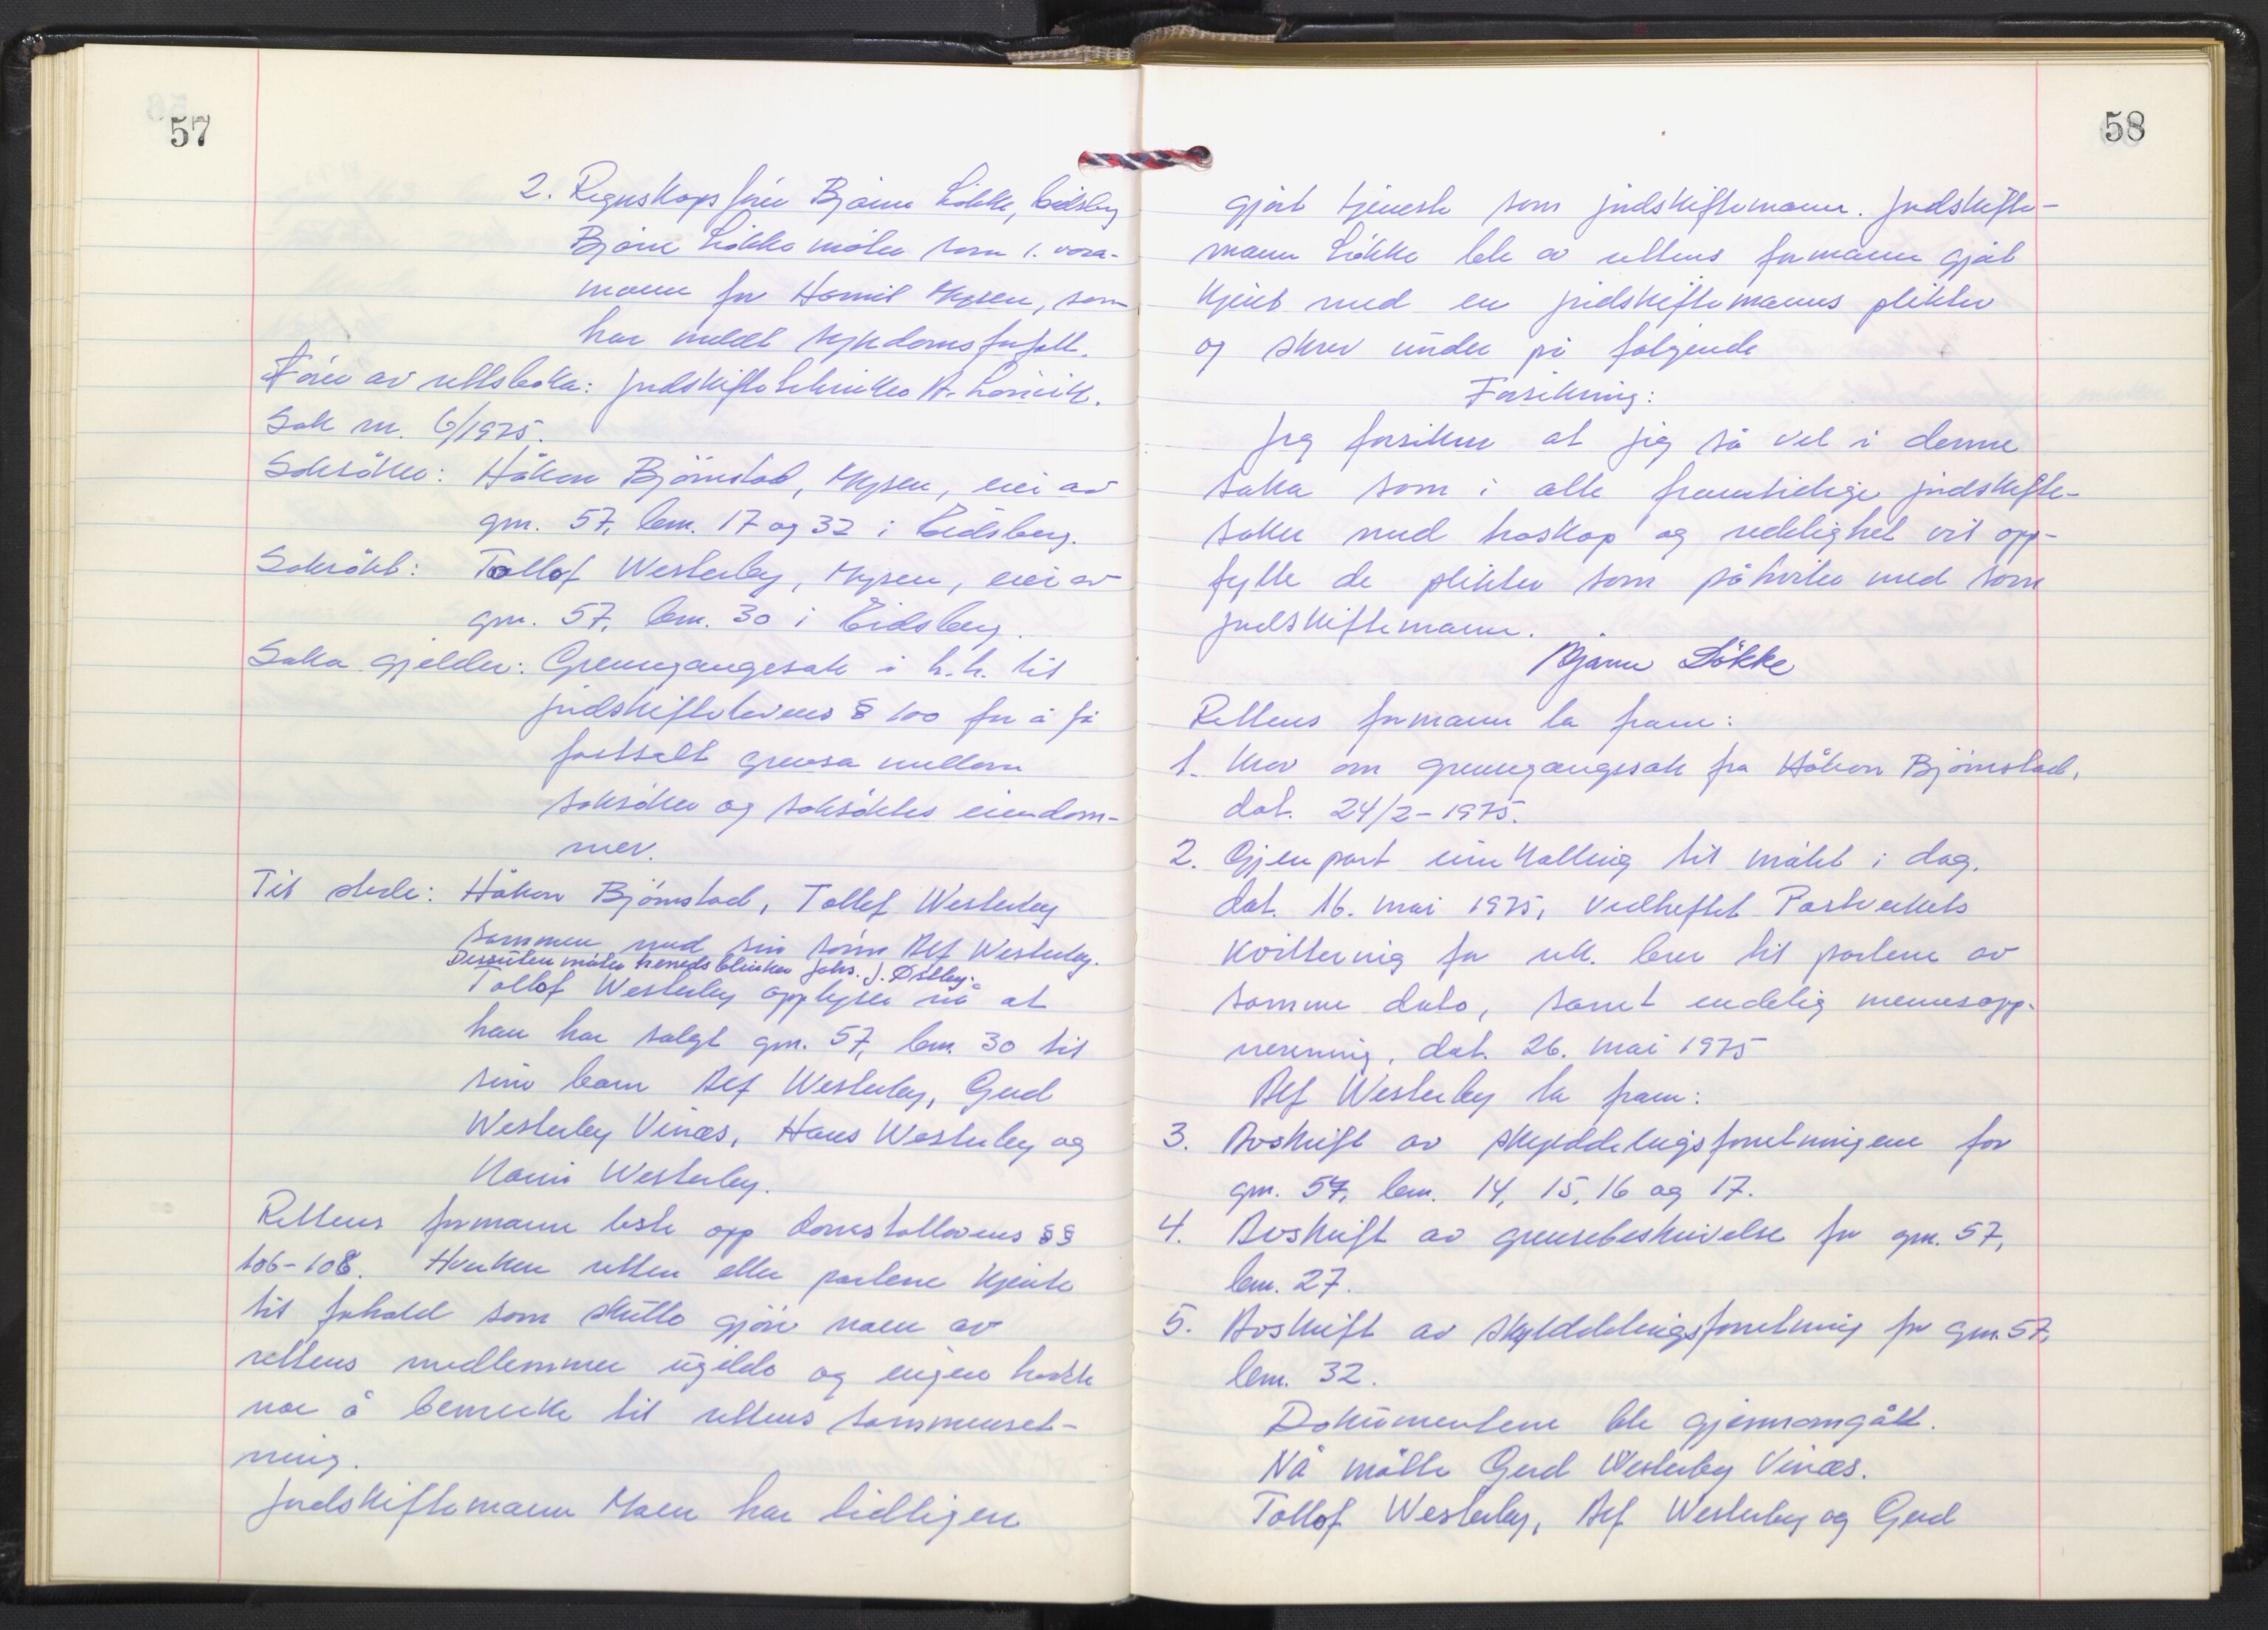 57
2. Regnskapsfører Bjarne Løkke, Eidsberg
Bjarne Løkke møter som 1. vara-
mann for Harriet Mysen, som
har meldt sykdomsforfall.
Fører av rettsboka: jordskiftetekniker A. Lørvik.
Sak nr. 6/1975.
Saksøker: Håkon Bjørnstad, Mysen, eier av
gnr. 57, bnr. 17 og 32 i Eidsberg.
Saksøkt: Tollof Westerby, Mysen, eier av
gnr. 57, bnr. 30 i Eidsberg.
Saka gjelder: Grensegangssak i h.h. til
jordskiftelovens § 100 for å få
fastsatt grensa mellom
saksøker og saksøktes eiendom-
mer.
Til stede: Håkon Bjørnstad, Tollef Westerby
sammen med sin sønn Alf Westerby.
Dessuten møter herredsblinker Johs. J. Østby.
Tollof Westerby opplyser nå at
han har solgt gnr. 57, bnr. 30 til
sine barn Alf Westerby, Gerd
Westerby Vinæs, Hans Westerby og
Karin Westerby.
Rettens formann leste opp domstollovens §§
106-108. Hverken retten eller partene kjente
til forhold som skulle gjøre noen av
rettens medlemmer ugilde og ingen hadde
noe å bemerke til rettens sammenset-
ning.
Jordskiftemann Moen har tidligere
58
gjort tjeneste som jordskiftemann. Jordskifte-
mann Løkke ble av rettens formann gjort
kjent med en jordskiftemanns plikter
og skrev under på følgende
Forsikring:
Jeg forsikrer at jeg så vel i denne
saka som i alle fremtidige jordskifte-
saker med troskap og redelighet vil opp-
fylle de plikter som påhviler med som
jordskiftemann.
Bjarne Løkke
Rettens formann la fram:
1. Krav om grensegangssak fra Håkon Bjørnstad,
dat. 24/2-1975.
2. Gjenpart innkalling til møtet i dag,
dat. 16. mai 1975, vedheftet Postverkets
kvittering for rek. brev til partene av
samme dato, samt endelig mannsopp-
nevning, dat. 26. mai 1975
Alf Westerby la fram:
3. Avskrift av skylddelingsforretningene for
gnr. 57, bnr. 14, 15, 16 og 17.
4. Avskrift av grensebeskrivelse for gnr. 57,
bnr. 27.
5. Avskrift av skylddelingsforretning for gnr. 57,
bnr. 32.
Dokumentene ble gjennomgått.
Nå møtte Gerd Westerby Vinæs.
Tollof Westerby, Alf Westerby og Gerd